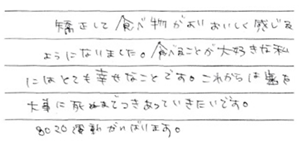 矯正して食べ物がよりおいしく感じる
ようになりました。食べることが大好きな私
にはとても幸せなことです。これからは歯を
大事に死ぬまでつきあっていきたいです。
8020運動がんばります。